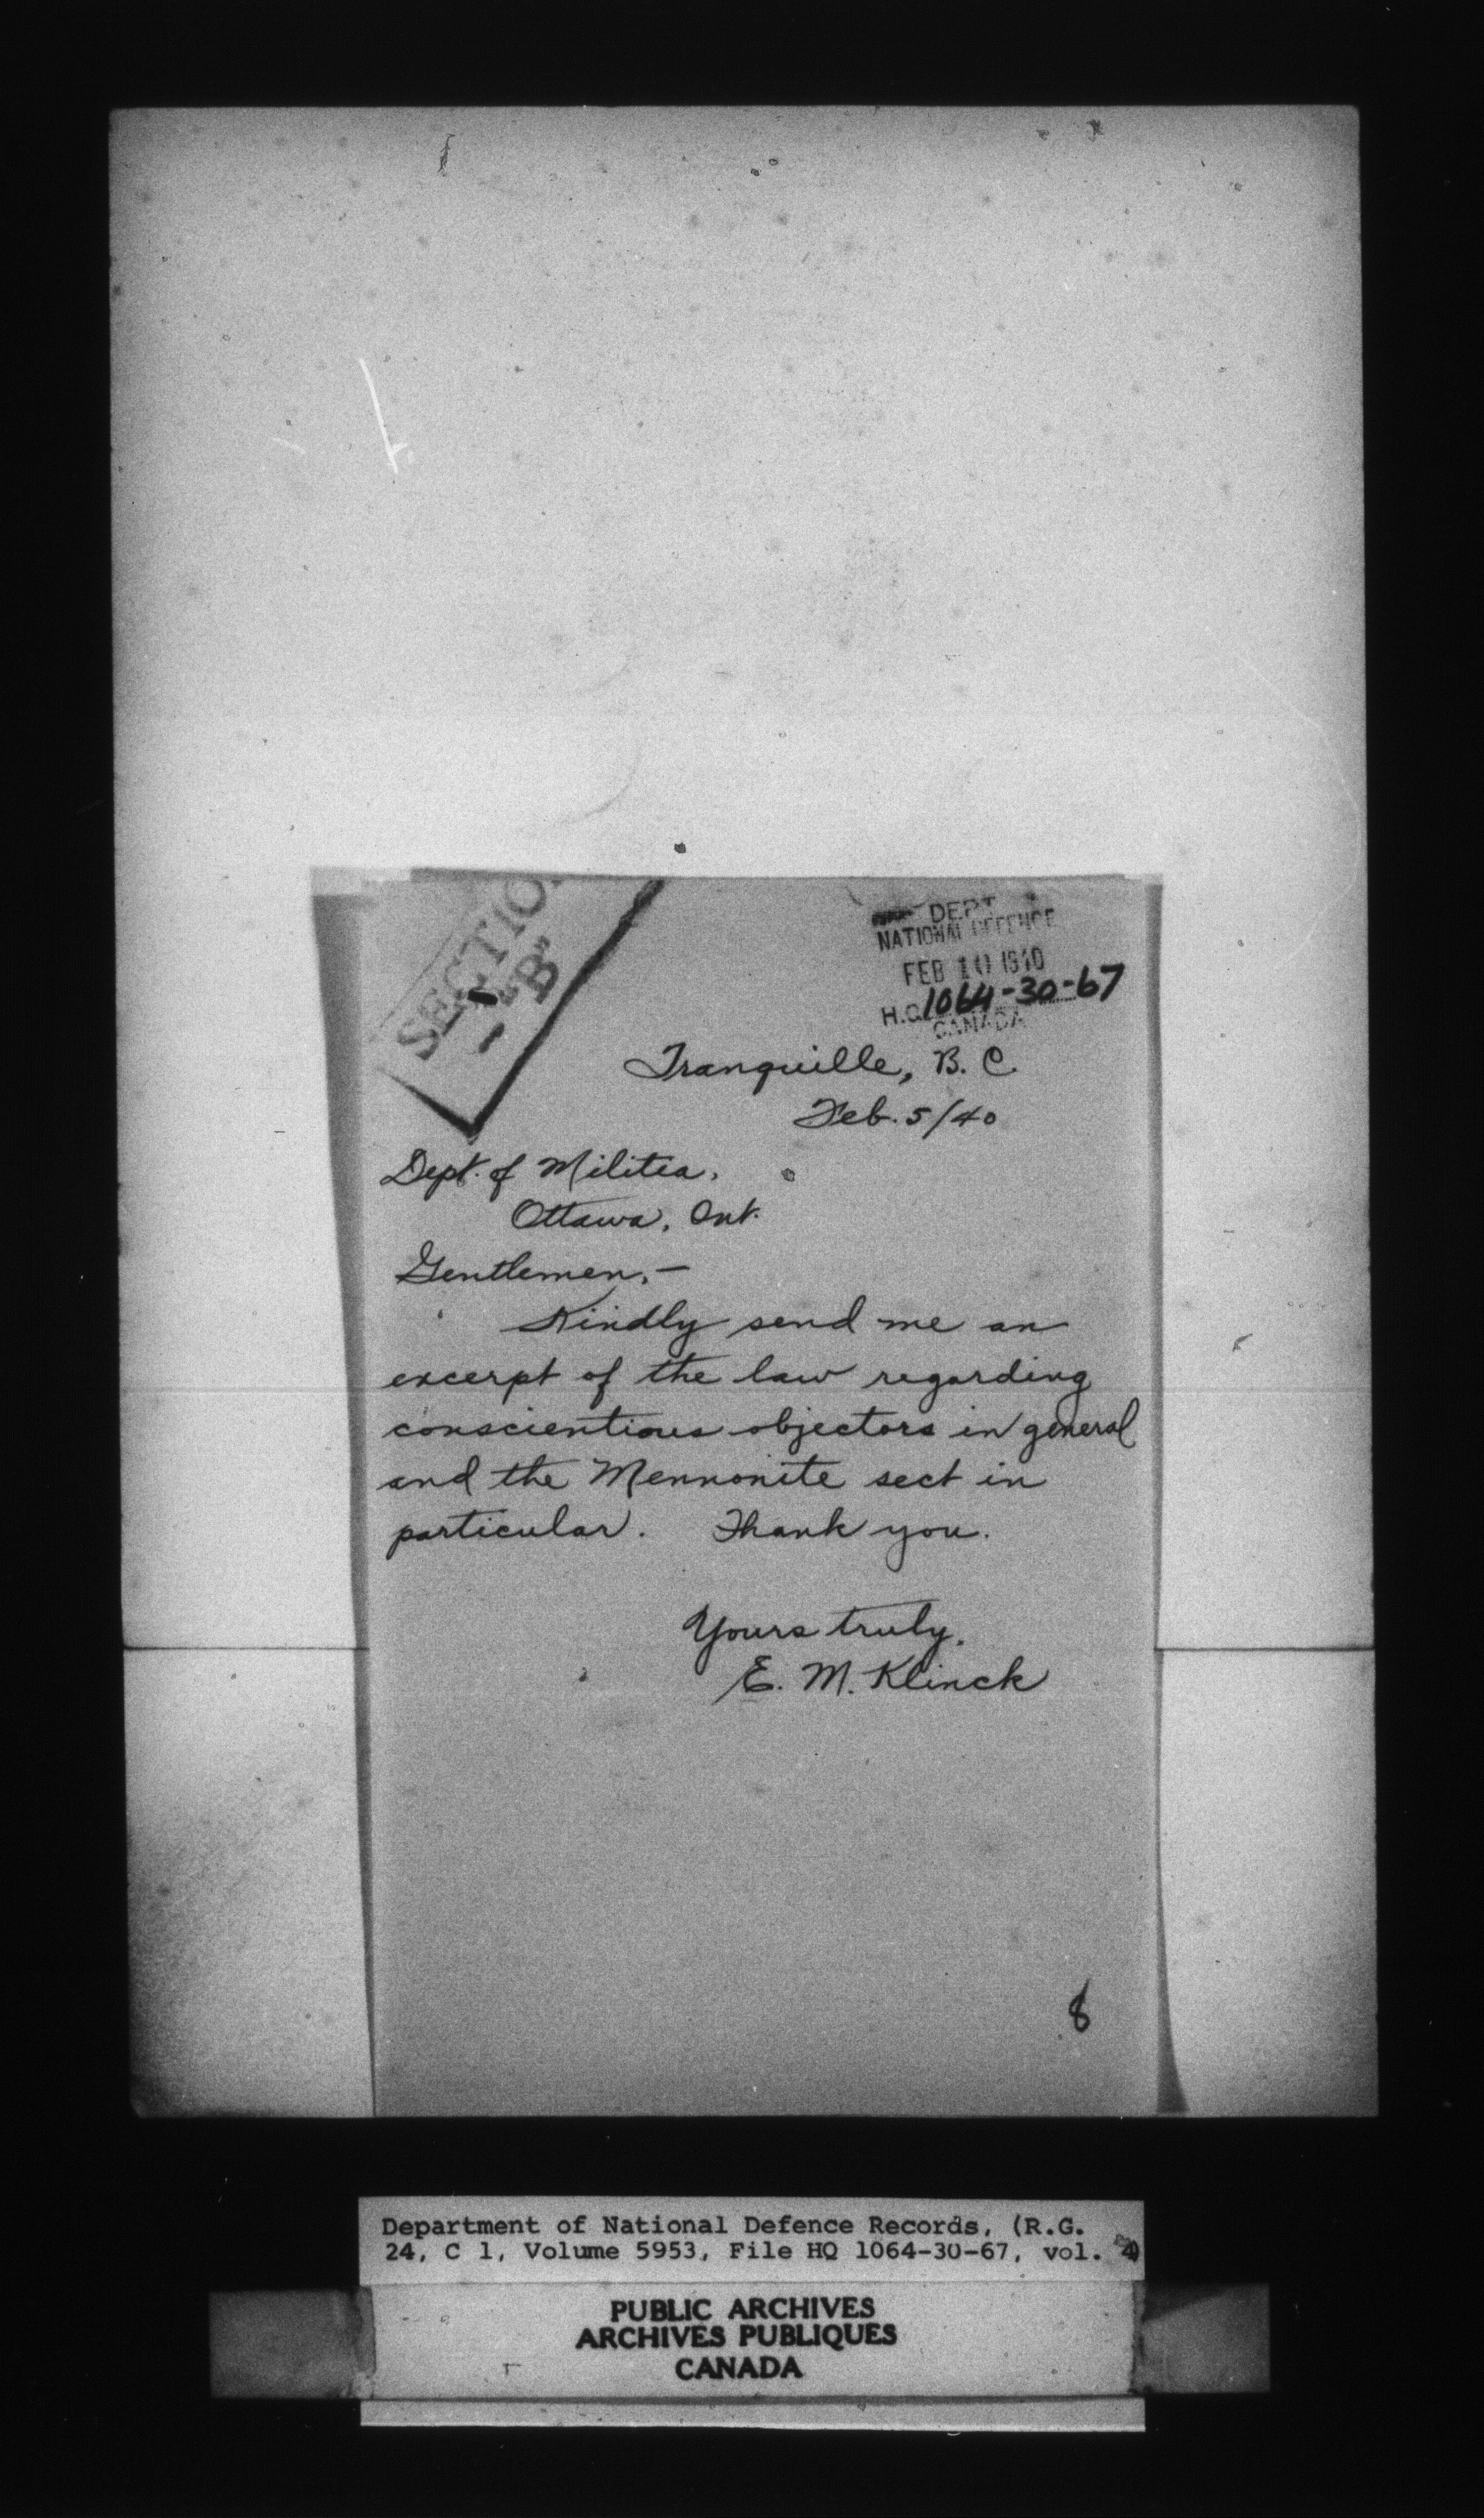 SECTION
"B"
DEPT
NATIONAL DEFENCE
FEB 10 1940
H.Q. 1064-30-67
CANADA
Tranquille, B. C.
Feb. 5/40
Dept. of Militia,
Ottawa, Ont.
Gentlemen,-
Kindly send me an
excerpt of the law regarding
conscientious objectors in general
and the Mennonite sect in
particular. Thank you.
Yours truly,
E. M. Klinck
8
Department of National Defence Records, (R.G.
24, C 1, Volume 5953, File HQ 1064-30-67, vol.
PUBLIC ARCHIVES
ARCHIVES PUBLIQUES
CANADA